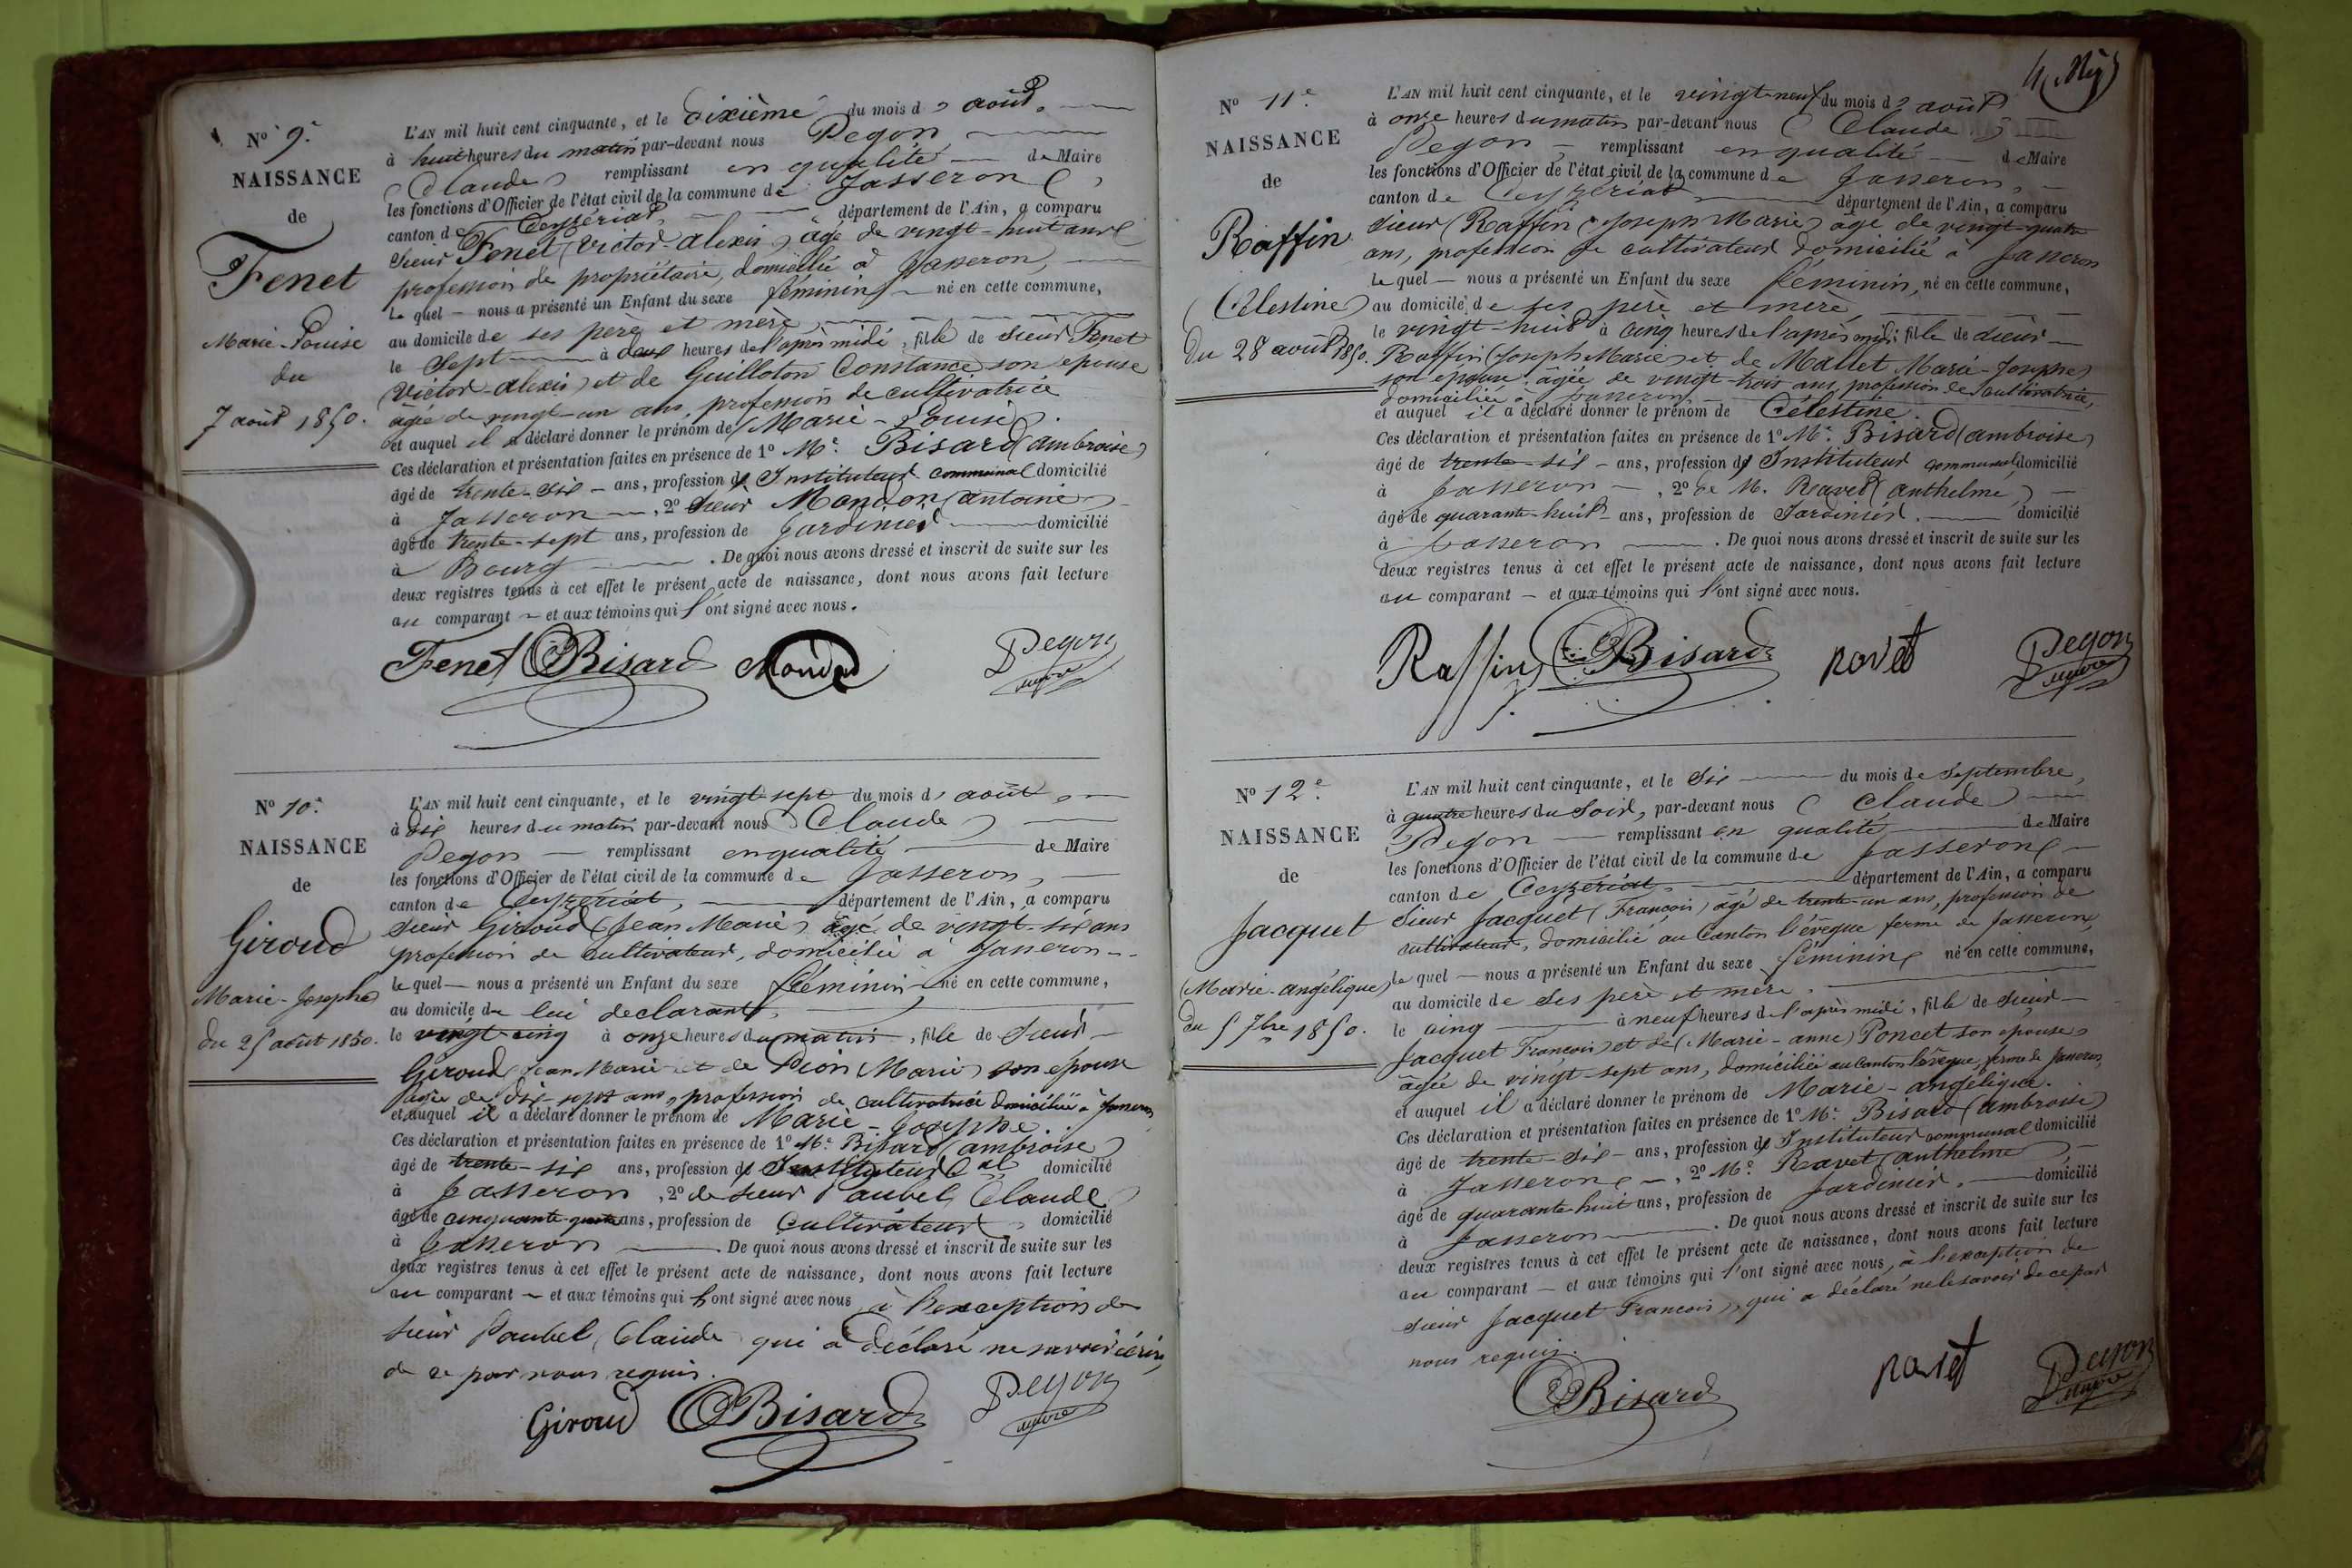 N° 9e
NAISSANCE
de
Fenet
Marie-Louise
du
7 août 1850.
L'AN mil huit cent cinquante, et le dixième du mois d' août,
à huit heures du matin par-devant nous Pegon
(Claude) remplissant en qualité de Maire
les fonctions d'Officier de l'état civil de la commune de Jasseron,
canton de Ceyzériat, département de l'Ain, a comparu
sieur Fenet (Victor-alexis) âgé de vingt-huit ans
profession de propriétaire, domicilié à Jasseron,
le quel nous a présenté un Enfant du sexe féminin né en cette commune,
au domicile de ses père et mère,
le sept à deux heures de l'après midi, fille de sieur Fenet
(Victor-alexis) et de Guilloton Constance son epouse
âgée de vingt-un ans, profession de cultivatrice
et auquel il a déclaré donner le prénom de Marie-Louise.
Ces déclaration et présentation faites en présence de 1° Mr. Bisard (ambroise)
âgé de trente-six ans, profession d' Instituteur communal domicilié
à Jasseron, 2° sieur (antoine)
âgé de trente-sept ans, profession de Jardinier domicilié
à Bourg. De quoi nous avons dressé et inscrit de suite sur les
deux registres tenus à cet effet le présent acte de naissance, dont nous avons fait lecture
au comparant et aux témoins qui l'ont signé avec nous.
Fenet Bisard Pegon
maire
N° 10e
NAISSANCE
de
Giroud
Marie-Josephe
du 25 août 1850.
L'AN mil huit cent cinquante, et le vingt sept du mois d' août,
à dix heures du matin par-devant nous (Claude)
Pegon remplissant en qualité de Maire
les fonctions d'Officier de l'état civil de la commune de Jasseron,
canton de Ceyzériat, département de l'Ain, a comparu
sieur Giroud (Jean Marie) âgé de vingt-six ans
profession de cultivateur, domicilié à Jasseron
le quel nous a présenté un Enfant du sexe féminin né en cette commune,
au domicile de lui declarant,
le vingt-cinq à onze heures du matin, fille de sieur
Giroud (Jean Marie) et de Pion (Marie) son epouse
âgée de dix-sept ans, profession de cultivatrice domiciliée à Jasseron,
et auquel il a déclaré donner le prénom de Marie-Josephe.
Ces déclaration et présentation faites en présence de 1° Mr. Bisard (ambroise)
âgé de trente-six ans, profession d' Instituteur Cal domicilié
à Jasseron, 2° de sieur Paubel Claude
âgé de cinquante-quatre ans, profession de Cultivateur, domicilié
à Jasseron. De quoi nous avons dressé et inscrit de suite sur les
deux registres tenus à cet effet le présent acte de naissance, dont nous avons fait lecture
au comparant et aux témoins qui l'ont signé avec nous à l'exception de
sieur Paubel Claude qui a déclaré ne savoir écrire,
de ce par nous requis.
Giroud Bisard Pegon
maire
N° 11e
NAISSANCE
de
Raffin
(Célestine)
du 28 août 1850.
L'AN mil huit cent cinquante, et le vingt-neuf du mois d' août
à onze heures du matin par-devant nous (Claude)
Pegon remplissant en qualité de Maire
les fonctions d'Officier de l'état civil de la commune de Jasseron,
canton de Ceyzériat département de l'Ain, a comparu
sieur Raffin (Joseph Marie) âgé de vingt-quatre
ans, profession de cultivateur domicilié à Jasseron
le quel nous a présenté un Enfant du sexe féminin, né en cette commune,
au domicile de ses père et mère,
le vingt-huit à cinq heures de l'après midi fille de sieur
Raffin (Joseph Marie) et de Mallet Marie-Josephe)
son epouse, âgée de vingt-trois ans, profession de cultivatrice,
domiciliée à Jasseron
et auquel il a déclaré donner le prénom de Célestine.
Ces déclaration et présentation faites en présence de 1° Mr. Bisard (ambroise)
âgé de trente-six ans, profession d' Instituteur communal domicilié
à Jasseron, 2° de M. Ravet (anthelme)
âgé de quarante-huit ans, profession de Jardinier. domicilié
à Jasseron. De quoi nous avons dressé et inscrit de suite sur les
deux registres tenus à cet effet le présent acte de naissance, dont nous avons fait lecture
au comparant et aux témoins qui l'ont signé avec nous.
Raffin Bisard ravet Pegon
maire
N° 12e
NAISSANCE
de
Jacquet
(Marie-angélique)
du 5 7bre 1850.
L'AN mil huit cent cinquante, et le six du mois de septembre,
à quatre heures du Soir, par-devant nous (Claude)
Pegon remplissant en qualité de Maire
les fonctions d'Officier de l'état civil de la commune de Jasseron
canton de Ceyzériat, département de l'Ain, a comparu
sieur Jacquet (François) âgé de trente-un ans, profession de
cultivateur, domicilié au Canton l'évêque ferme de Jasseron,
le quel nous a présenté un Enfant du sexe féminin né en cette commune,
au domicile de ses père et mère.
le cinq à neuf heures de l'après midi, fille de sieur
Jacquet François) et de (Marie-anne) Poncet son epouse
âgée de vingt-sept ans, domiciliée au Canton l'évêque ferme de Jasseron,
et auquel il a déclaré donner le prénom de Marie-angélique.
Ces déclaration et présentation faites en présence de 1° Mr. Bisard (ambroise)
âgé de trente-six ans, profession d' Instituteur communal domicilié
à Jasseron, 2° Mr. Ravet (anthelme)
âgé de quarante huit ans, profession de Jardinier. domicilié
à Jasseron. De quoi nous avons dressé et inscrit de suite sur les
deux registres tenus à cet effet le présent acte de naissance, dont nous avons fait lecture
au comparant et aux témoins qui l'ont signé avec nous, à l'exception de
sieur Jacquet François, qui a déclaré ne le savoir de ce par
nous requis.
Bisard ravet Pegon
maire